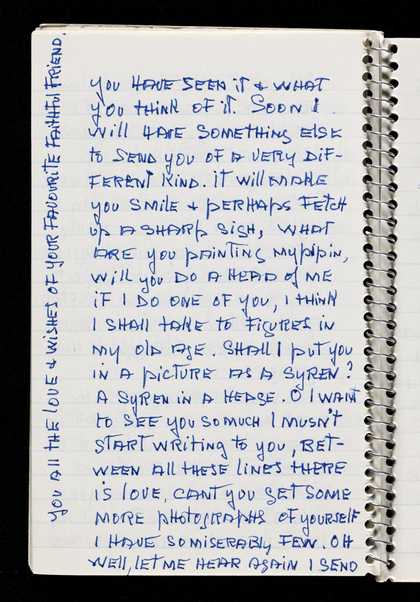 you HAVE SEEN iT & WHAT
you THiNK OF iT. SOON I
Will HAVE SOMETHiNG ELSE
to SEND you OF A VERY DiF-
FERENT KiND. iT Will MAKE
you SMiLE & PERHAPS FETCH
up A SHARP SiGH, WHAT
ARE you pAiNTiNG My pipiN,
Will you DO A HEAD of ME
iF I DO ONE OF you, I THiNK
I SHALL TAKE to FiGURES iN
My OLD AGE. SHALL I put you
iN A piCTURE AS A SyREN?
A SyREN iN A HEDGE. O I WANT
to SEE you SO MUCH I MUSN'T
START WRiTiNG to you, BET-
WEEN All THESE LiNES THERE
iS LOVE, CANT you GET SOME
MORE pHOTOGRApHS OF yOURSELF
I HAVE SO MiSERABLy FEW. OH
WEll, LET ME HEAR AGAiN I SEND
you All THE LOVE & WiSHES OF yOUR FAVOURiTE FAiTHful FRiEND.